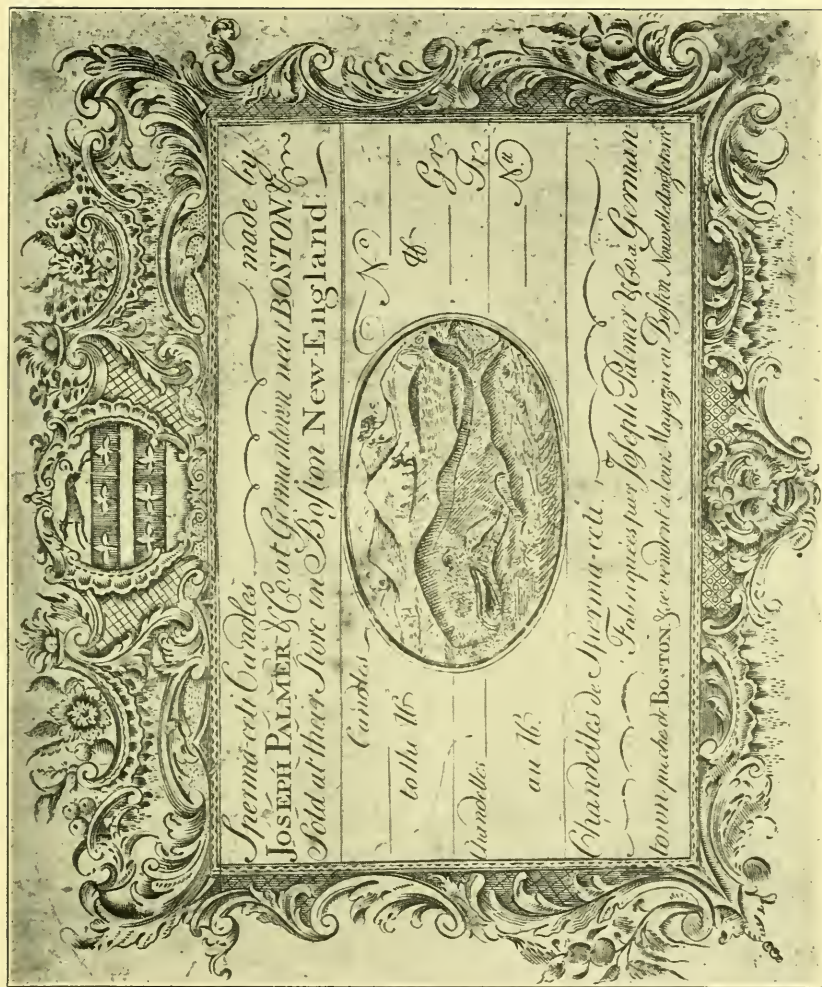 Sperma-ceti Candles made by
JOSEPH PALMER & Co. at Germantown near BOSTON, &
Sold at their Store in Boston New-England:
Candles Nº
to the lb. lb
Gr
Chandelles Tr
au lb. Nu
Chandelles de Sperma-ceti
Fabriquées par Joseph Palmer & Co. a German
town, proche de BOSTON & se vendent a leur Magazin en Boston Nouvelle Angleterre